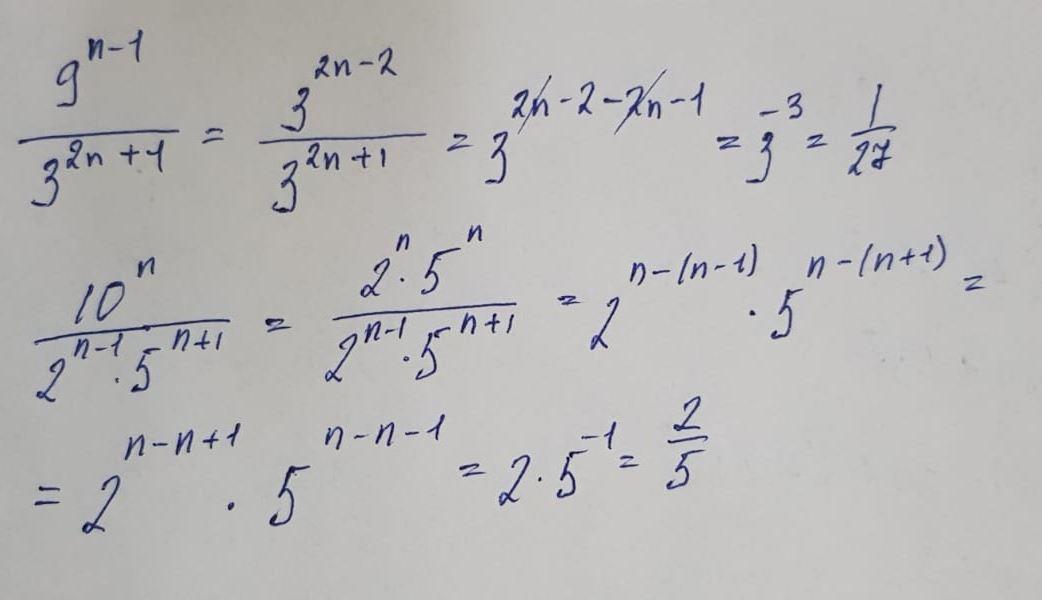 9^(n-1) / 3^(2n+1) = 3^(2n-2) / 3^(2n+1) = 3^(2n-2-2n-1) = 3^(-3) = 1/27
10^n / (2^(n-1) · 5^(n+1)) = (2^n · 5^n) / (2^(n-1) · 5^(n+1)) = 2^(n-(n-1)) · 5^(n-(n+1)) =
= 2^(n-n+1) · 5^(n-n-1) = 2 · 5^(-1) = 2/5